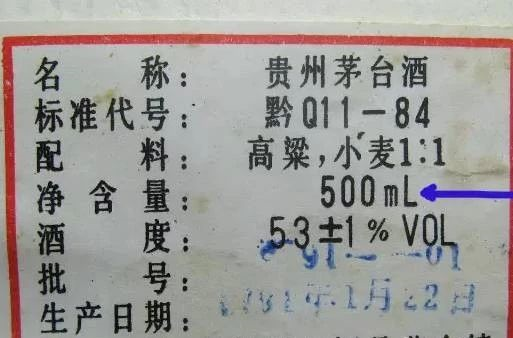 名称：贵州茅台酒
标准代号：黔Q11-84
配料：高粱，小麦1:1
净含量：500mL
酒度：53±1% VOL
批号：91-
生产日期：1991年1月22日